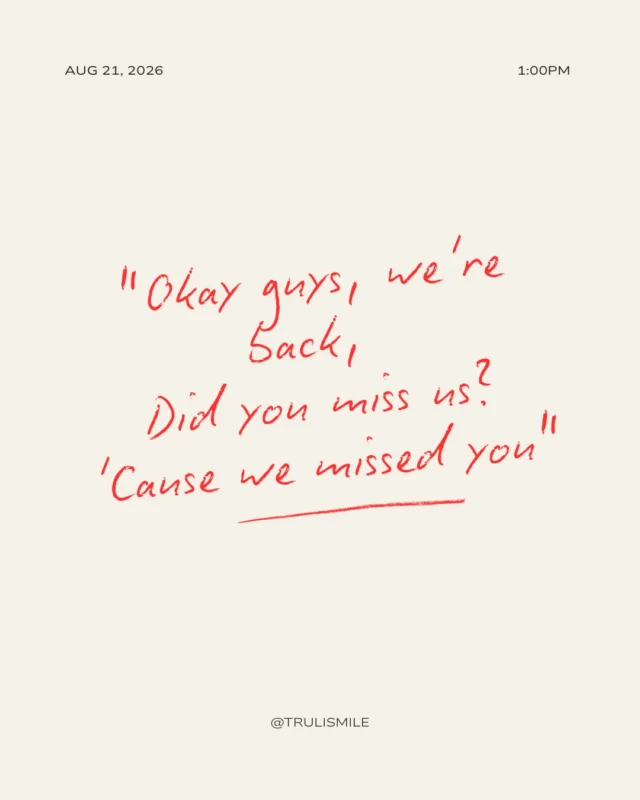 AUG 21, 2026
1:00PM
"Okay guys, we're
back,
Did you miss us?
'Cause we missed you"
@TRULISMILE